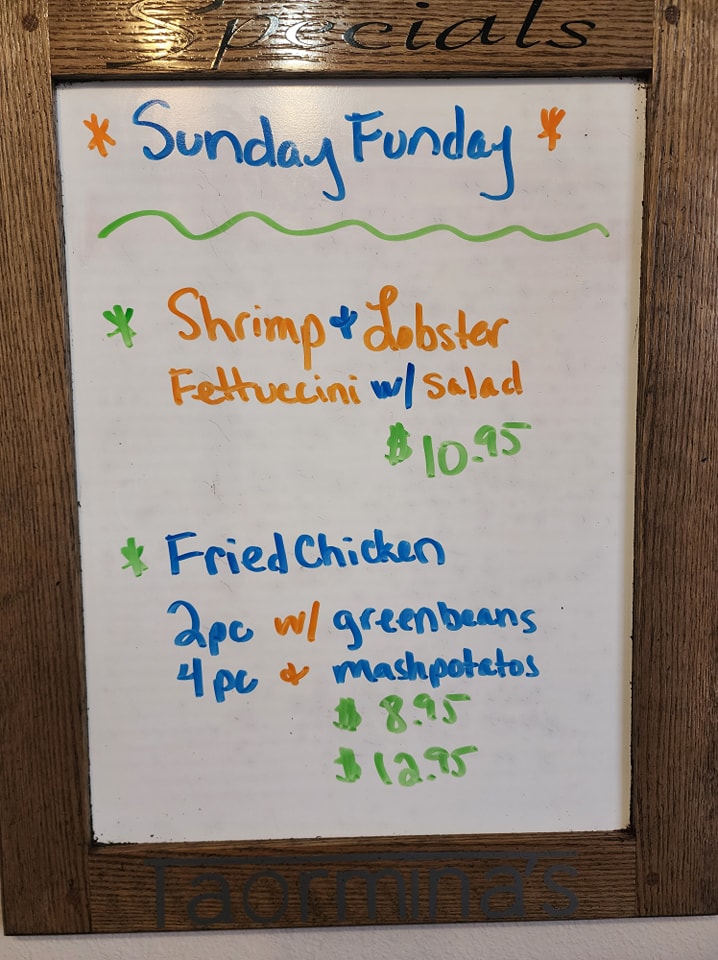 Specials
* Sunday Funday *
* Shrimp & Lobster
Fettuccini w/ salad
$10.95
* Fried Chicken
2pc w/ greenbeans
4pc & mashpotatos
$ 8.95
$ 12.95
Taormina's